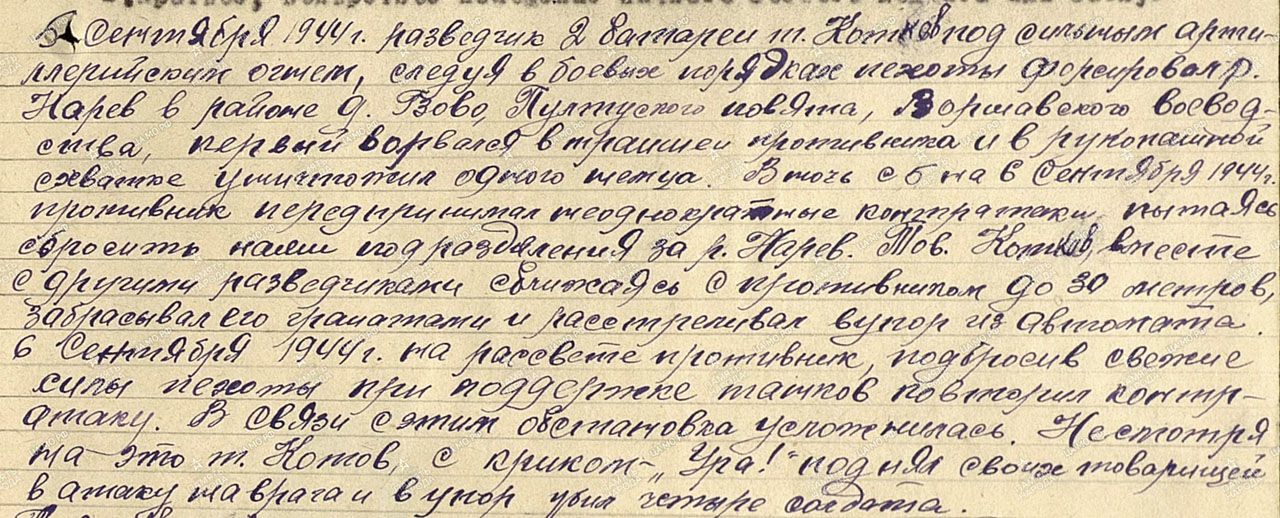 5 Сентября 1944 г. разведчик 2 батареи т. Котов под сильным арти-
ллерийским огнем, следуя в боевых порядках пехоты форсировал р.
Нарев в районе д. Взово, Пултуского повята, Варшавского воевод-
ства, первый ворвался в траншеи противника и в рукопашной
схватке уничтожил одного немца. В ночь с 5 на 6 Сентября 1944 г.
противник передпринимал неоднократные контратаки пытаясь
сбросить наши подразделения за р. Нарев. Тов. Котов, вместе
с другими разведчиками сближаясь с противником до 30 метров,
забрасывал его гранатами и расстреливал в упор из автомата.
6 Сентября 1944 г. на рассвете противник, подбросив свежие
силы пехоты при поддержке танков повторил контр-
атаку. В связи с этим обстановка усложнилась. Несмотря
на это т. Котов с криком – „Ура!“ поднял своих товарищей
в атаку на врага и в упор убил четыре солдата.